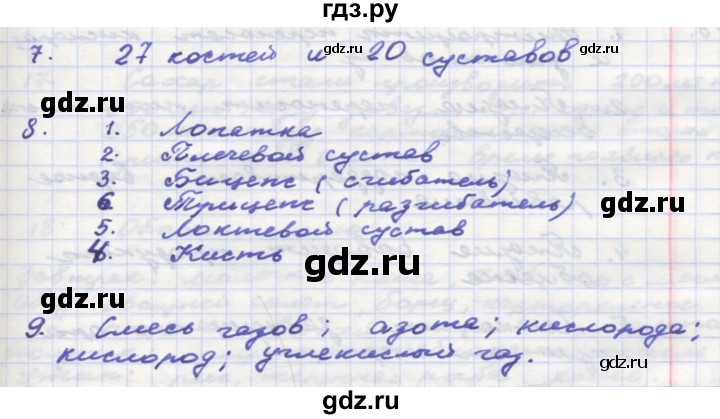 гдз.ру
7. 27 костей и 20 суставов
gdz.ru gdz.ru
8. 1. Лопатка
2. Плечевой сустав
3. Бицепс (сгибатель)
6 Трицепс (разгибатель)
5. Локтевой сустав
4. Кисть
gdz.ru
gdz.ru
9. Смесь газов; азота; кислорода;
кислород; углекислый газ.
gdz.ru
gdz.ru